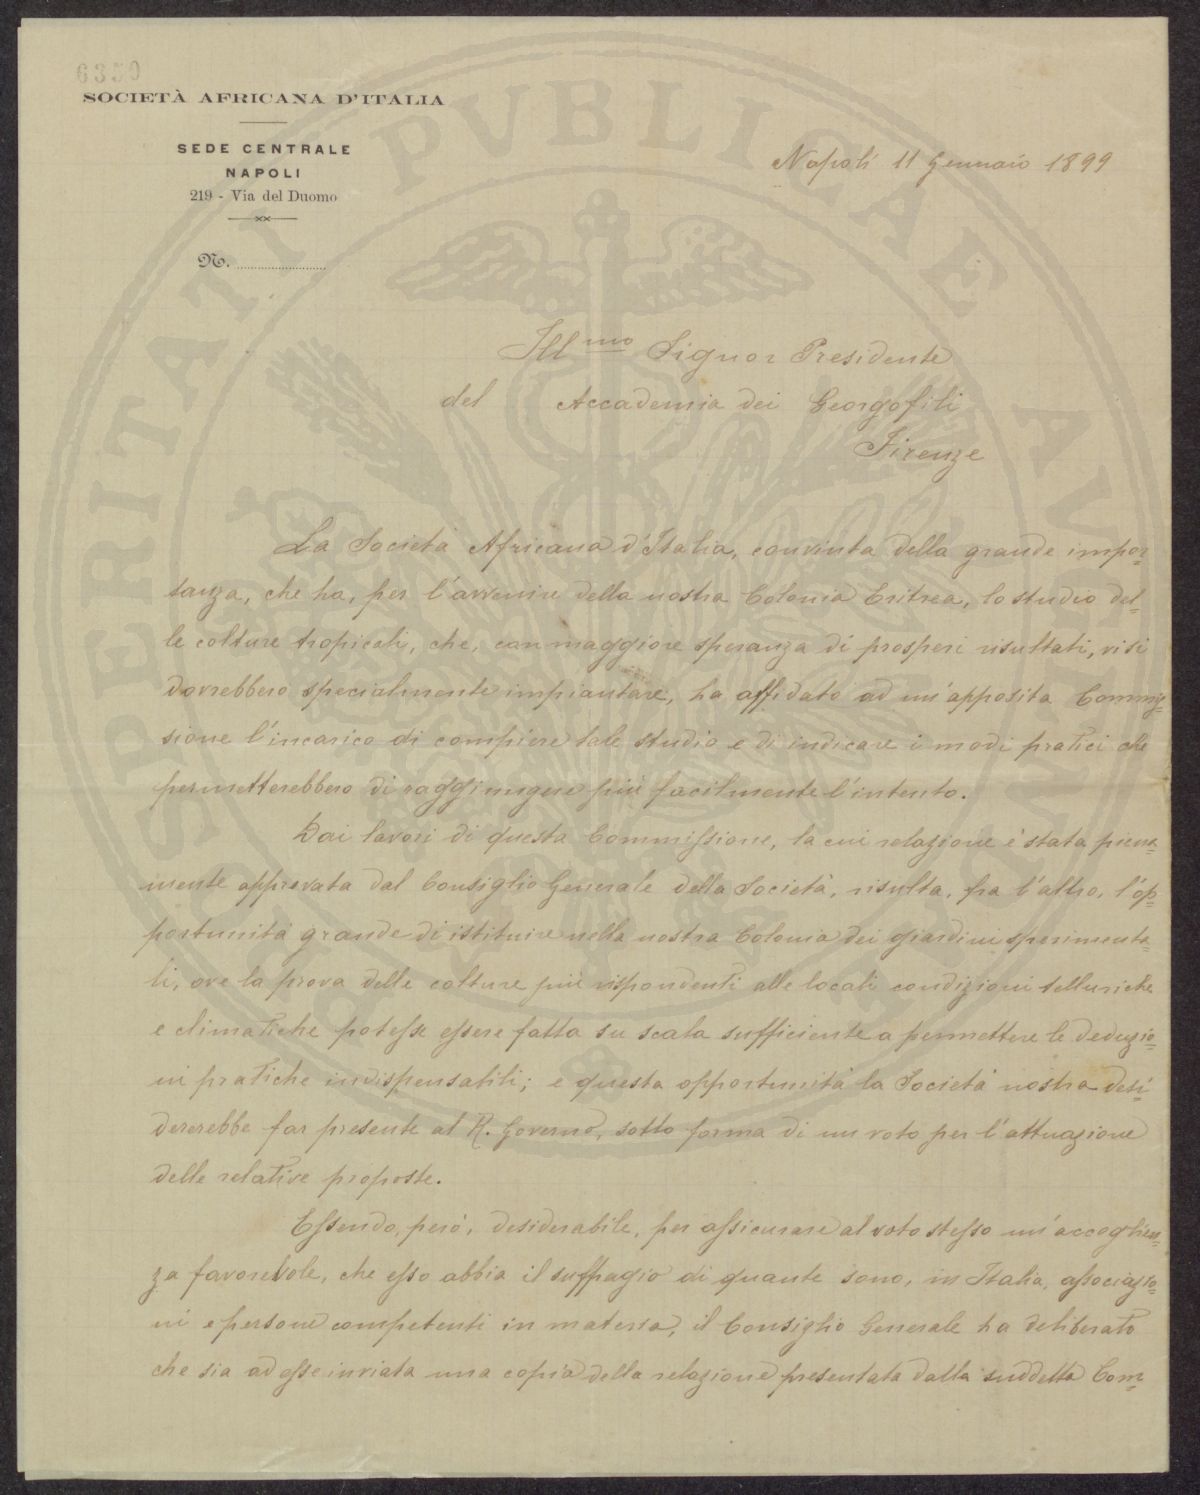 6350
SOCIETÀ AFRICANA D'ITALIA
SEDE CENTRALE
NAPOLI
219 - Via del Duomo
No.
Napoli 11 Gennaio 1899
Ill mo Signor Presidente
del Accademia dei Georgofili
Firenze
La Società Africana d'Italia, convinta della grande impor=
tanza, che ha, per l'avvenire della nostra Colonia Eritrea, lo studio del=
le colture tropicali, che, con maggiore speranza di prosperi risultati, vi si
dovrebbero specialmente impiantare, ha affidato ad un'apposita Commis=
sione l'incarico di compiere tale studio e di indicare i modi pratici che
permetterebbero di raggiungere più facilmente l'intento.
Dai lavori di questa Commissione, la cui relazione è stata piena=
mente approvata dal Consiglio Generale della Società, risulta, fra l'altro, l'op=
portunità grande di istituire nella nostra Colonia dei giardini sperimenta=
li, ove la prova delle colture più rispondenti alle locali condizioni telluriche
e climatiche potesse essere fatta su scala sufficiente a permettere le deduzio=
ni pratiche indispensabili; e questa opportunità la Società nostra desi=
dererebbe far presente al R. Governo, sotto forma di un voto per l'attuazione
delle relative proposte.
Essendo, però, desiderabile, per assicurare al voto stesso un'accoglien=
za favorevole, che esso abbia il suffragio di quante sono, in Italia, associazio=
ni e persone competenti in materia, il Consiglio Generale ha deliberato
che sia ad esse inviata una copia della relazione presentata dalla suddetta Com=
PROSPERITATI PVBLICAE AVGENDAE